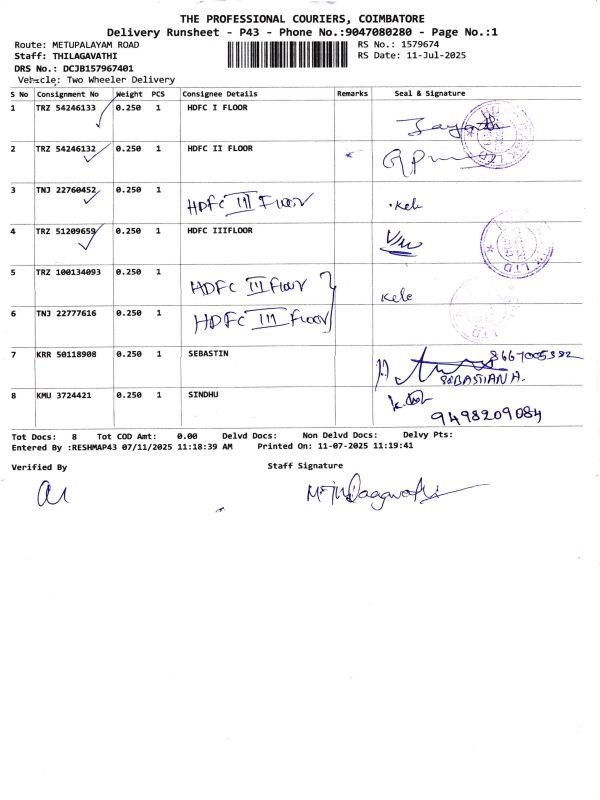 THE PROFESSIONAL COURIERS, COIMBATORE
Delivery Runsheet - P43 - Phone No.:9047080280 - Page No.:1
Route: METUPALAYAM ROAD RS No.: 1579674
Staff: THILAGAVATHI RS Date: 11-Jul-2025
DRS No.: DCJB157967401
Vehicle: Two Wheeler Delivery
S No Consignment No Weight PCS Consignee Details Remarks Seal & Signature
1 TRZ 54246133 0.250 1 HDFC I FLOOR
2 TRZ 54246132 0.250 1 HDFC II FLOOR
3 TNJ 22760452 0.250 1 HDFC III Floor
4 TRZ 51209659 0.250 1 HDFC IIIFLOOR
5 TRZ 100134093 0.250 1 HDFC III Floor
6 TNJ 22777616 0.250 1 HDFC III Floor
7 KRR 50118908 0.250 1 SEBASTIN 8667005392
SEBASTIAN A.
8 KMU 3724421 0.250 1 SINDHU
9498209084
Tot Docs: 8 Tot COD Amt: 0.00 Delvd Docs: Non Delvd Docs: Delvy Pts:
Entered By :RESHMAP43 07/11/2025 11:18:39 AM Printed On: 11-07-2025 11:19:41
Verified By Staff Signature